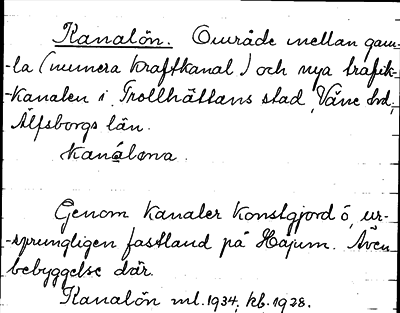 Kanalön. Område mellan gam-
-la (numera kraftkanal) och nya trafik-
-kanalen i Trollhättans stad, Väne hd,
Älfsborgs län.
kanálöna.
Genom kanaler konstgjord ö, ur-
-sprungligen fastland på Hajum. Även
bebyggelse där.
Kanalön ml. 1934; kb. 1928.